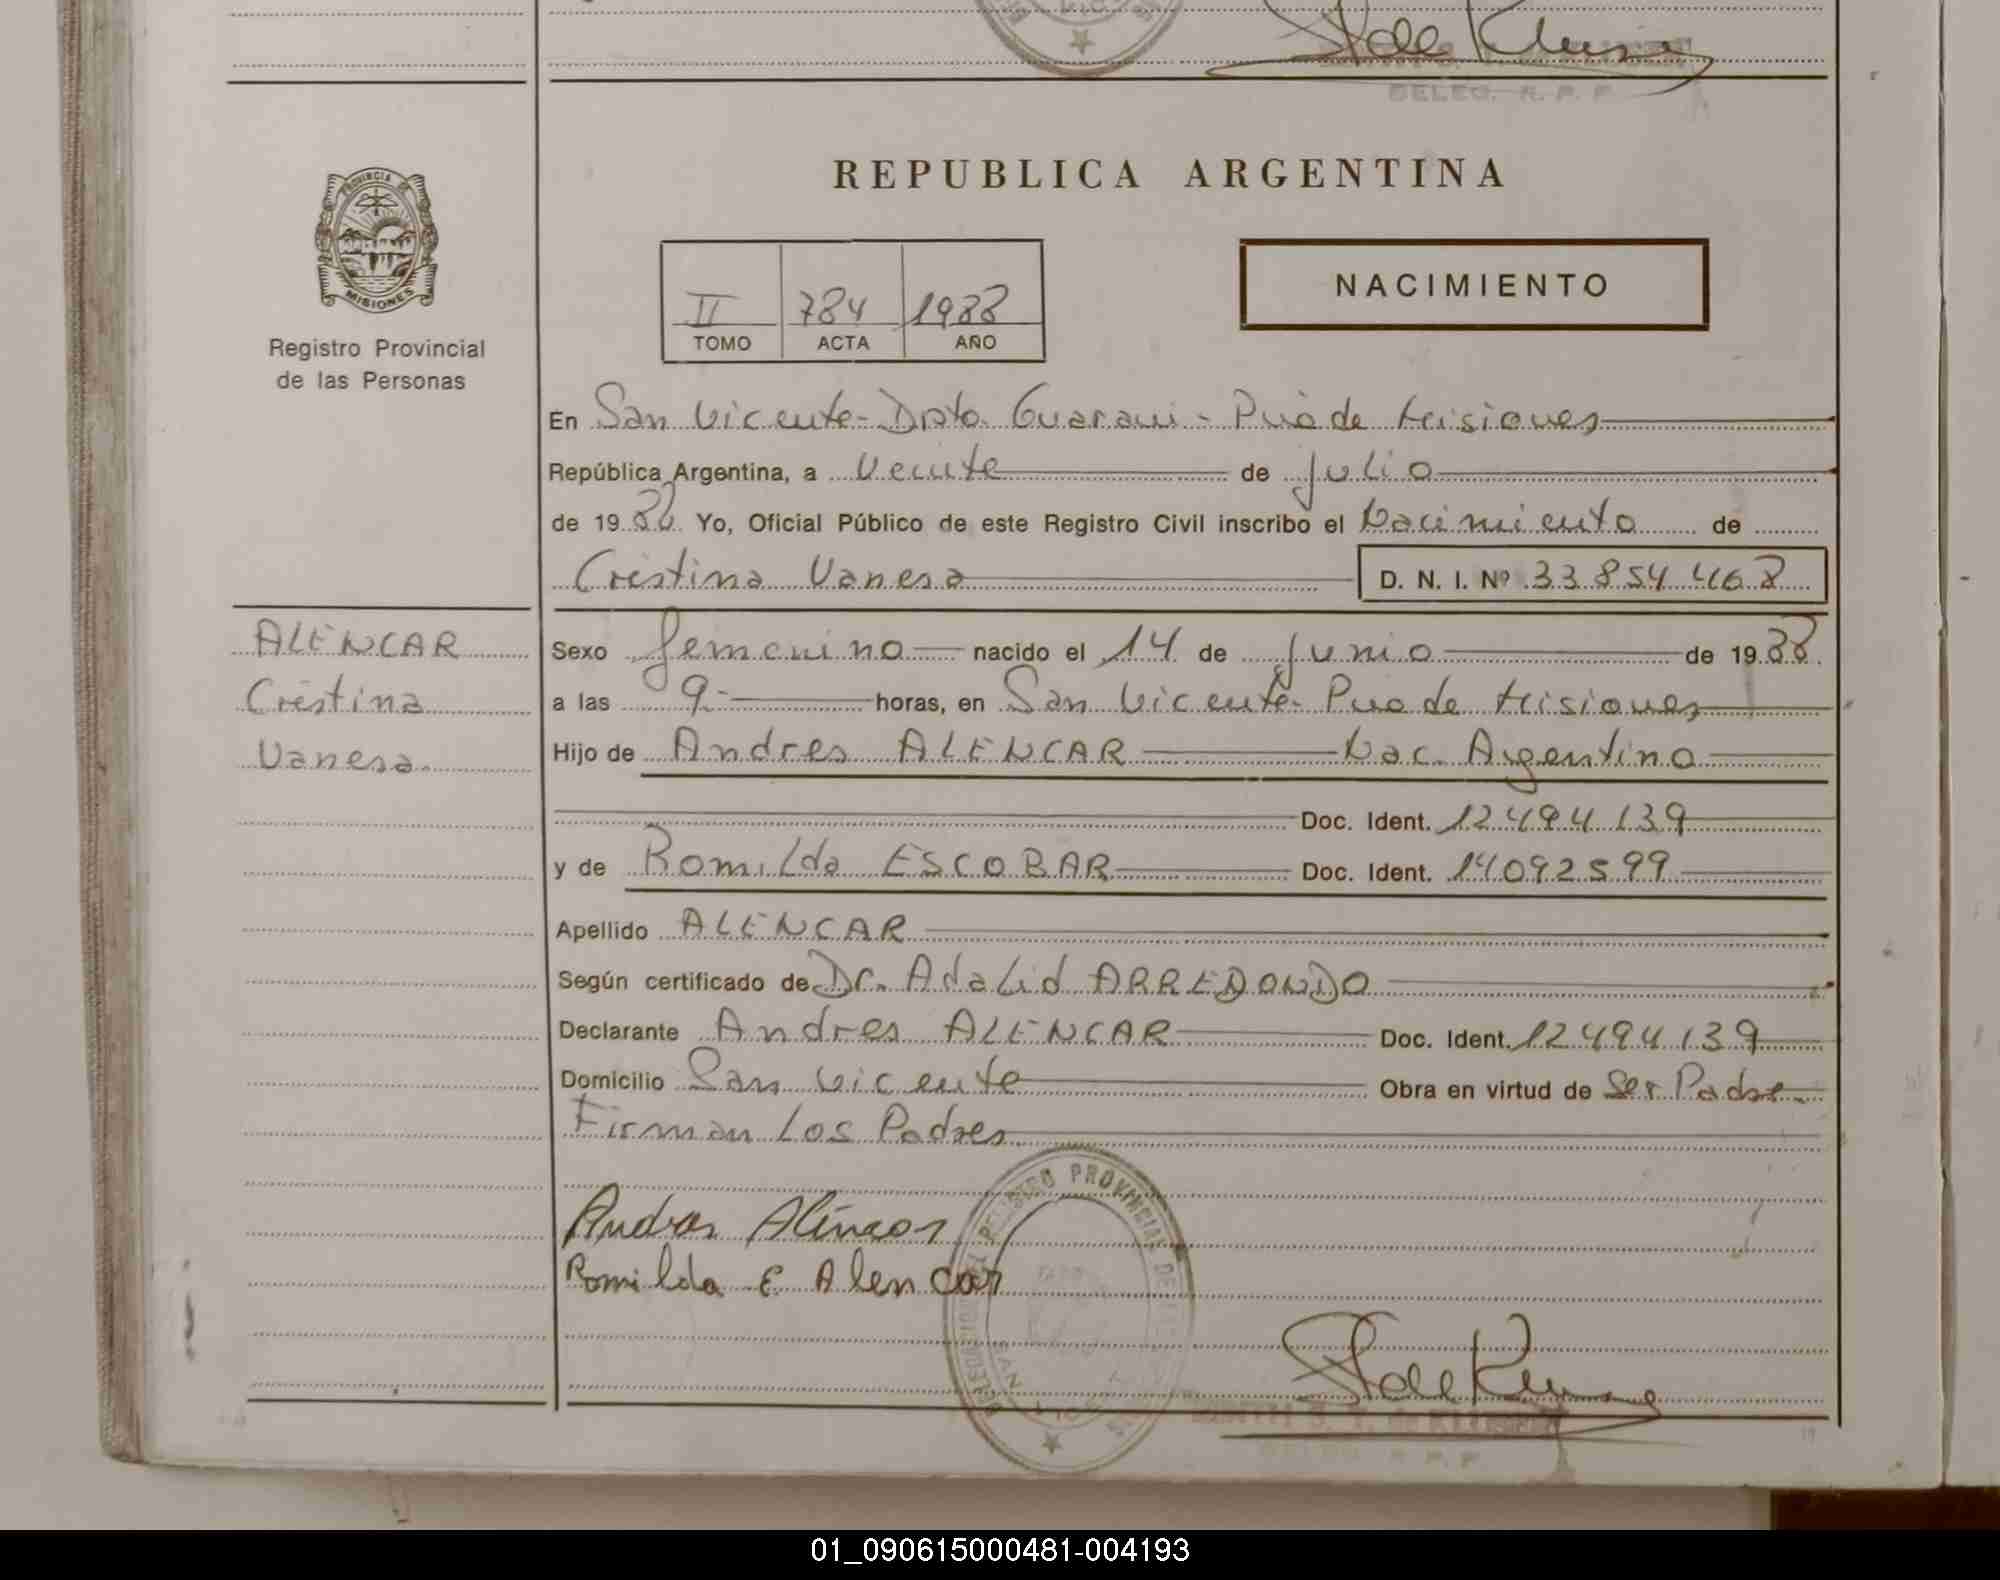 REPUBLICA ARGENTINA
PROVINCIA DE
MISIONES
Registro Provincial
de las Personas
II 784 1988
TOMO ACTA AÑO
NACIMIENTO
En San Vicente - Dpto. Guarani - Pcia de Misiones
República Argentina, a Veinte de Julio
de 1988 Yo, Oficial Público de este Registro Civil inscribo el Nacimiento de
Cristina Vanesa D. N. I. Nº 33 854 468
ALENCAR
Cristina
Vanesa.
Sexo femenino nacido el 14 de Junio de 1988.
a las 9- horas, en San Vicente - Pcia de Misiones
Hijo de Andres ALENCAR Nac. Argentino
Doc. Ident. 12494139
y de Romilda ESCOBAR Doc. Ident. 14092599
Apellido ALENCAR
Según certificado de Dr. Adalid ARREDONDO
Declarante Andres ALENCAR Doc. Ident. 12494139
Domicilio San Vicente Obra en virtud de Ser Padre.
Firman Los Padres
REGISTRO PROVINCIAL DE
Andres Alencar
Romilda E Alencar
01_090615000481-004193